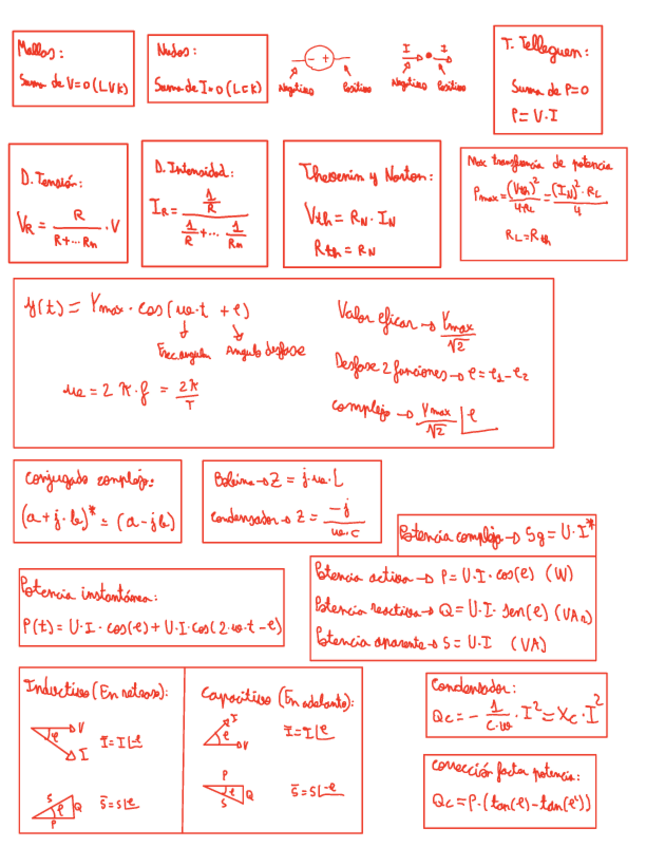 Mallas:
Suma de V=0 (LVK)
Nudos:
Suma de I=0 (LCK)
- +
Negativo Positivo
I I
Negativo Positivo
T. Telleguen:
Suma de P=0
P= V·I
D. Tensión:
V_R = R / (R+... Rn) · V
D. Intensidad:
I_R = (1/R) / (1/R +... 1/Rn)
Thevenin y Norton:
Vth = R_N · I_N
Rth = R_N
Max transferencia de potencia
Pmax = (Vth)^2 / 4RL = (I_N)^2 · R_L / 4
R_L = Rth
y(t) = Ymax · cos(ω·t + φ)
Frec. angular Angulo desfase
ω = 2π·f = 2π / T
Valor eficaz → Ymax / √2
Desfase 2 funciones → φ = φ1 - φ2
Complejo → Ymax / √2 ∠φ
Conjugado complejo:
(a+j·b)* = (a-jb)
Bobina → Z = j·ω·L
Condensador → Z = -j / ω·C
Potencia compleja → Sg = U·I*
Potencia activa → P = U·I·cos(φ) (W)
Potencia reactiva → Q = U·I·sen(φ) (VAr)
Potencia aparente → S = U·I (VA)
Potencia instantánea:
P(t) = U·I·cos(φ) + U·I·cos(2·ω·t-φ)
Inductivo (En retraso):
φ V I
I = I∠-φ
S φ Q P
S = S∠φ
Capacitivo (En adelanto):
I φ V
I = I∠φ
P φ Q S
S = S∠-φ
Condensador:
Qc = - 1 / C·ω · I^2 = Xc · I^2
Corrección factor potencia:
Qc = P·(tan(φ) - tan(φ'))